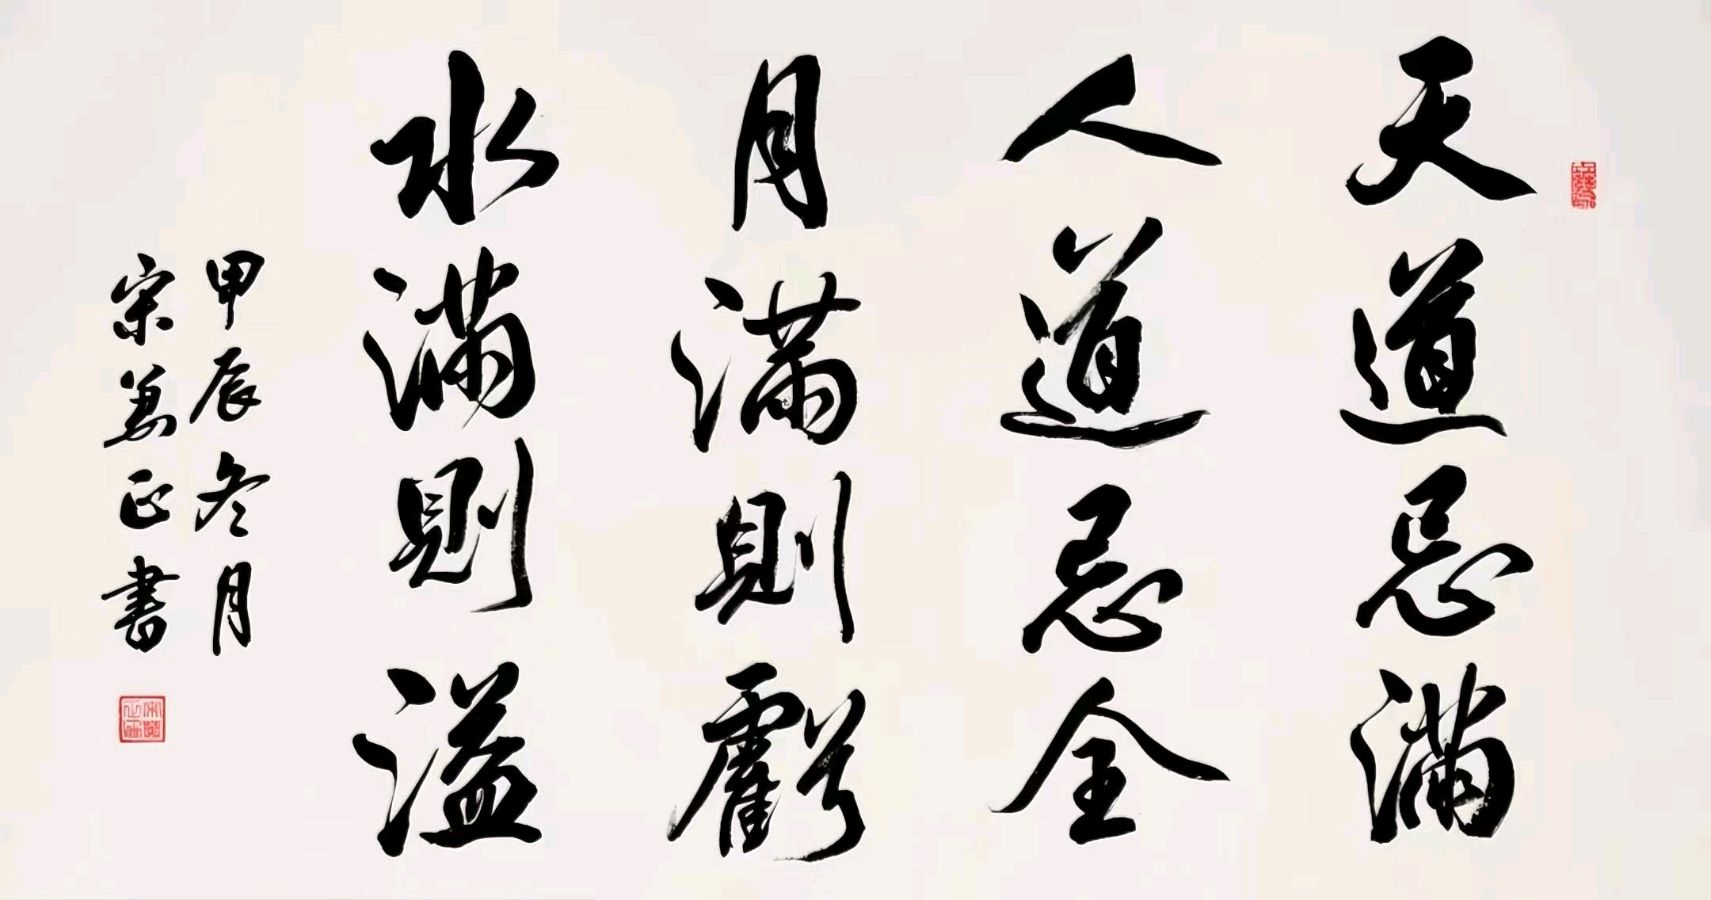 天道忌滿
人道忌全
月滿則虧
水滿則溢
甲辰冬月
宋萬正書